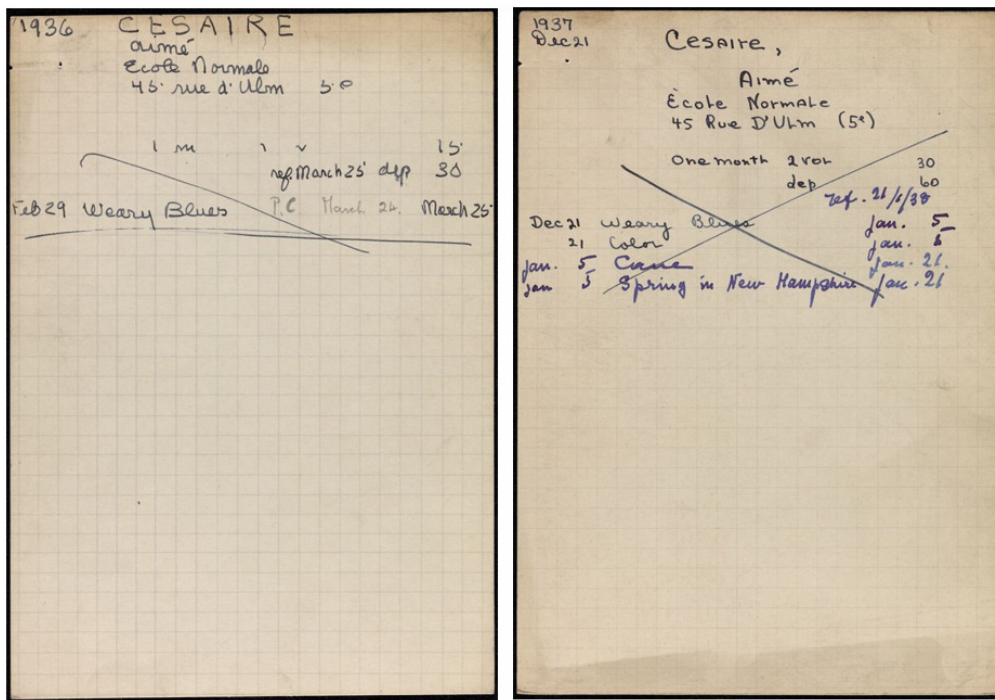 1936 CESAIRE
aimé
Ecole Normale
45 rue d'Ulm 5e
1 m 1 v 15
ref. March 25 dep 30
Feb 29 Weary Blues P.C March 24. March 25
1937
Dec 21
Cesaire,
Aimé
Ècole Normale
45 Rue D'Ulm (5e)
One month 2 vol 30
dep 60
ref. 21/1/38
Dec 21 Weary Blues Jan. 5
21 Color Jan. 5
Jan. 5 Cane Jan. 21.
Jan 5 Spring in New Hampshire Jan. 21